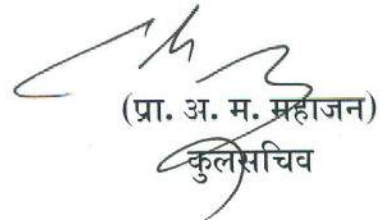 (प्रा. अ. म. महाजन)
कुलसचिव